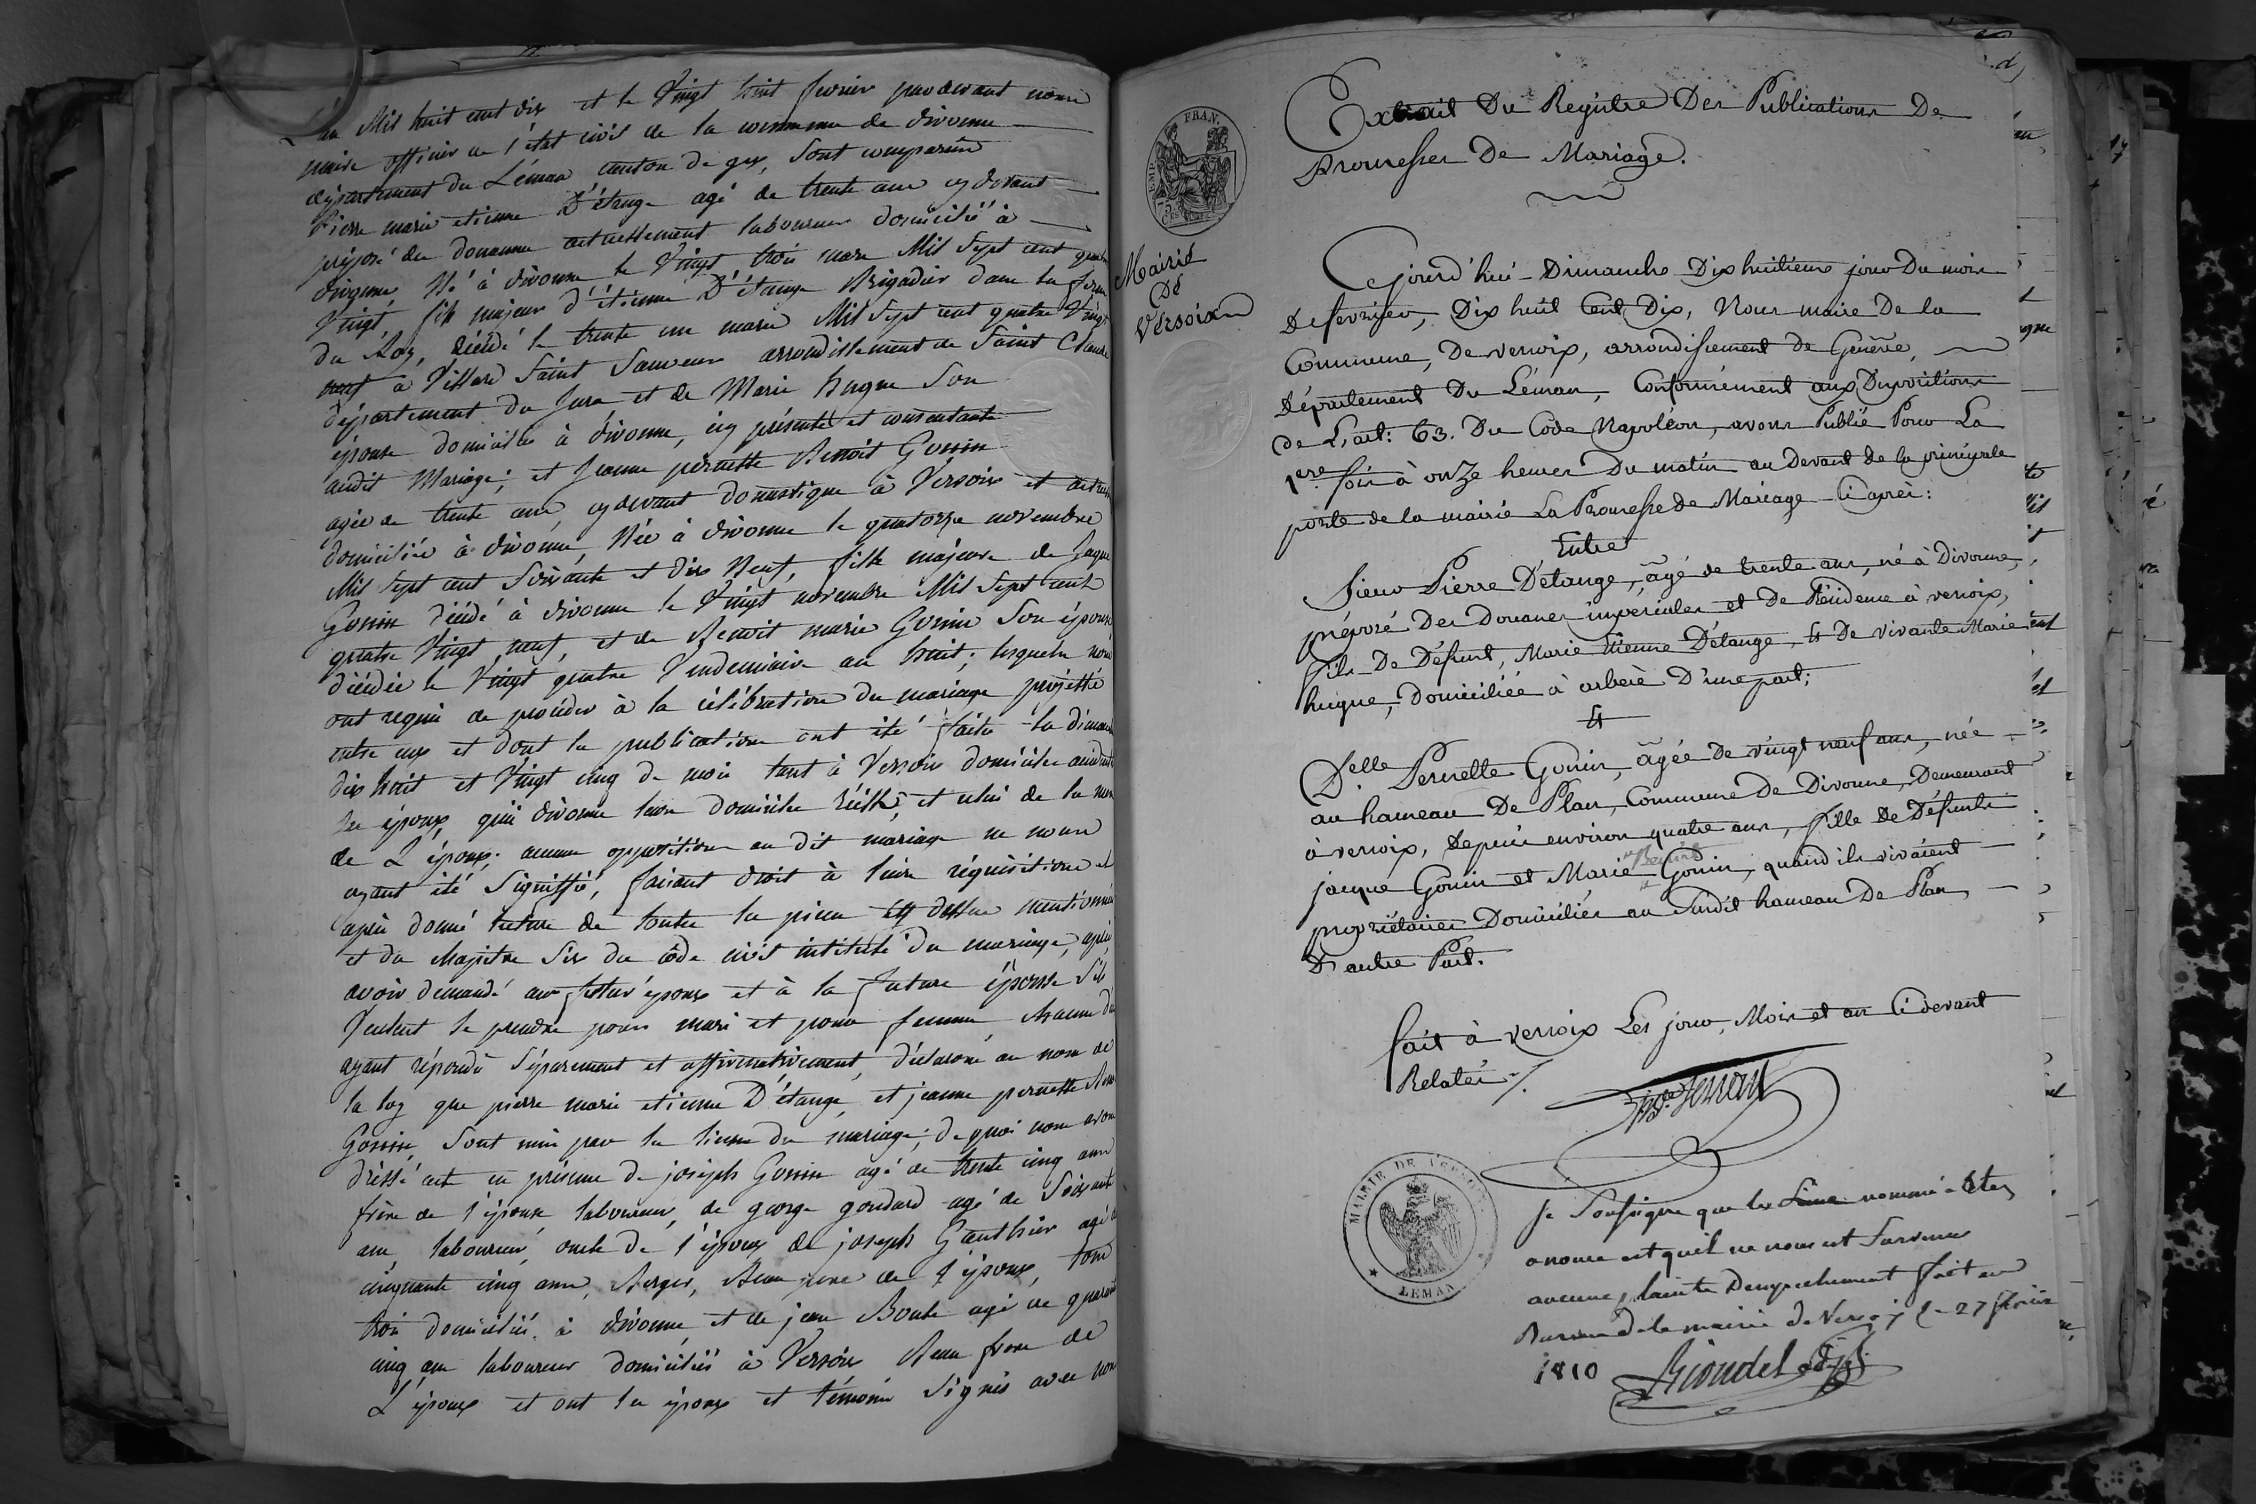 L'an Mil huit cent dix et le Vingt huit fevrier pardevant nous
maire officier de l'état civil de la commune de divonne
département du Léman canton de gex, Sont comparus
Pierre marie etienne D'étange agé de trente ans cy devant
préposé des douanne actuellement laboureur domicilié à
divonne Né à divonne le Vingt trois mars Mil Sept cent quatre
Vingt, fils majeur d'étienne D'étange Brigadier dans les fermes
du Roy, décédé le trente un mars Mil Sept cent quatre Vingt
neuf à Villard Saint Sauveur arrondissement de Saint Claude
département du Jura et de Marie hugue Son
épouse domiciliée à divonne, icy présente et consentante
audit Mariage; et Jeanne pernette Benoit Gonin
agée de trente ans cy devant domestique à Versoix et
domiciliée à divonne, Née à divonne le quatorze novembre
Mil Sept cent Soixante et dix Neuf, fille majeure de Jaque
Gonin décédé à divonne le Vingt novembre Mil Sept cent
quatre Vingt neuf, et de Benoit marie Gonin Son épouse
décédée le Vingt quatre Vendemiaire an huit; lesquels nous
ont requis de procéder à la célébration du mariage projetté
entre eux et dont les publications ont été faites les dimanche
dix huit et Vingt cinq du mois tant à Versoix domicile
des époux, qu'à divonne leur domicile réelle, et celui de la mere
de L'époux; aucune opposition au dit mariage ne nous
ayant été Signiffié, faisant droit à leurs réquisitions et
après donné lecture de toutes les pieces cy dessus mentionnées
et du chapitre Six du côde civil intitulé du mariage, après
avoir demandé au futur époux et à la future épouse S'ils
Veulent se prendre pour mari et pour femme chacun d'eux
ayant répondu Séparement et affirmativement, déclarons au nom de
la loy que pierre marie etienne D'étange, et jeanne pernette
Gonin, Sont unis par les liens du mariage; de quoi nous avons
dréssé acte en présence de joseph Gonin agé de trente cinq ans
frère de l'épouse laboureur, de george goudard agé de Soixante
ans, laboureur, oncle de l'époux de joseph Gauthier agé de
cinquante cinq ans, Berger, Beau pere de l'époux, tous
trois domiciliés à divonne et de jean Boule agé de quarante
cinq ans laboureur domicilié à Versoix Beau frere de
L'époux et ont les époux et témoins Signés avec nous
EMP. FRAN.
Mairie
De
Versoix
Extrait Du Registre Des Publications De
Promesses De Mariage.
Cejourd'hui Dimanche Dix huitieme jour Du mois
De fevrier, Dix huit Cent Dix, Nous maire De la
Commune, De versoix, arrondissement de Genève,
Département Du Léman, Conformément aux Dispositions
de L'art: 63. Du Code Napoléon, avons Publié Pour La
1ere fois à onze heures Du matin au Devant de la principale
porte de la mairie La Promesse de Mariage Ci après:
Entre
Sieur Pierre D'étange, âgé de trente ans, né à Divonne,
préposé Des Douanes impériales et De Résidence à versoix,
fils De Défunt, Marie Etienne D'étange, Et De vivante Marie
hugue, Domiciliée à arbère D'une part;
Et
Delle Pernette Gonin, âgée De vingt neuf ans, née
au hameau De Plan, Commune De Divonne, Demeurant
à versoix, Depuis environ quatre ans, fille De Défunts
jacque Gonin et Marie Gonin, quand ils vivaient
propriétaires Domiciliés au Susdit hameau De Plan,
D'autre Part.
fait à versoix Les jour, Mois et an Ci devant
Relatés /.
MAIRIE DE VERSOIX
LEMAN
Je Soussigne que les nommé
a nonce et quil ne nous est Survenu
aucune plainte Dempechement fait au
Bureau de la mairie de Versoix le 27 fevrier
1810 Riondel adj.